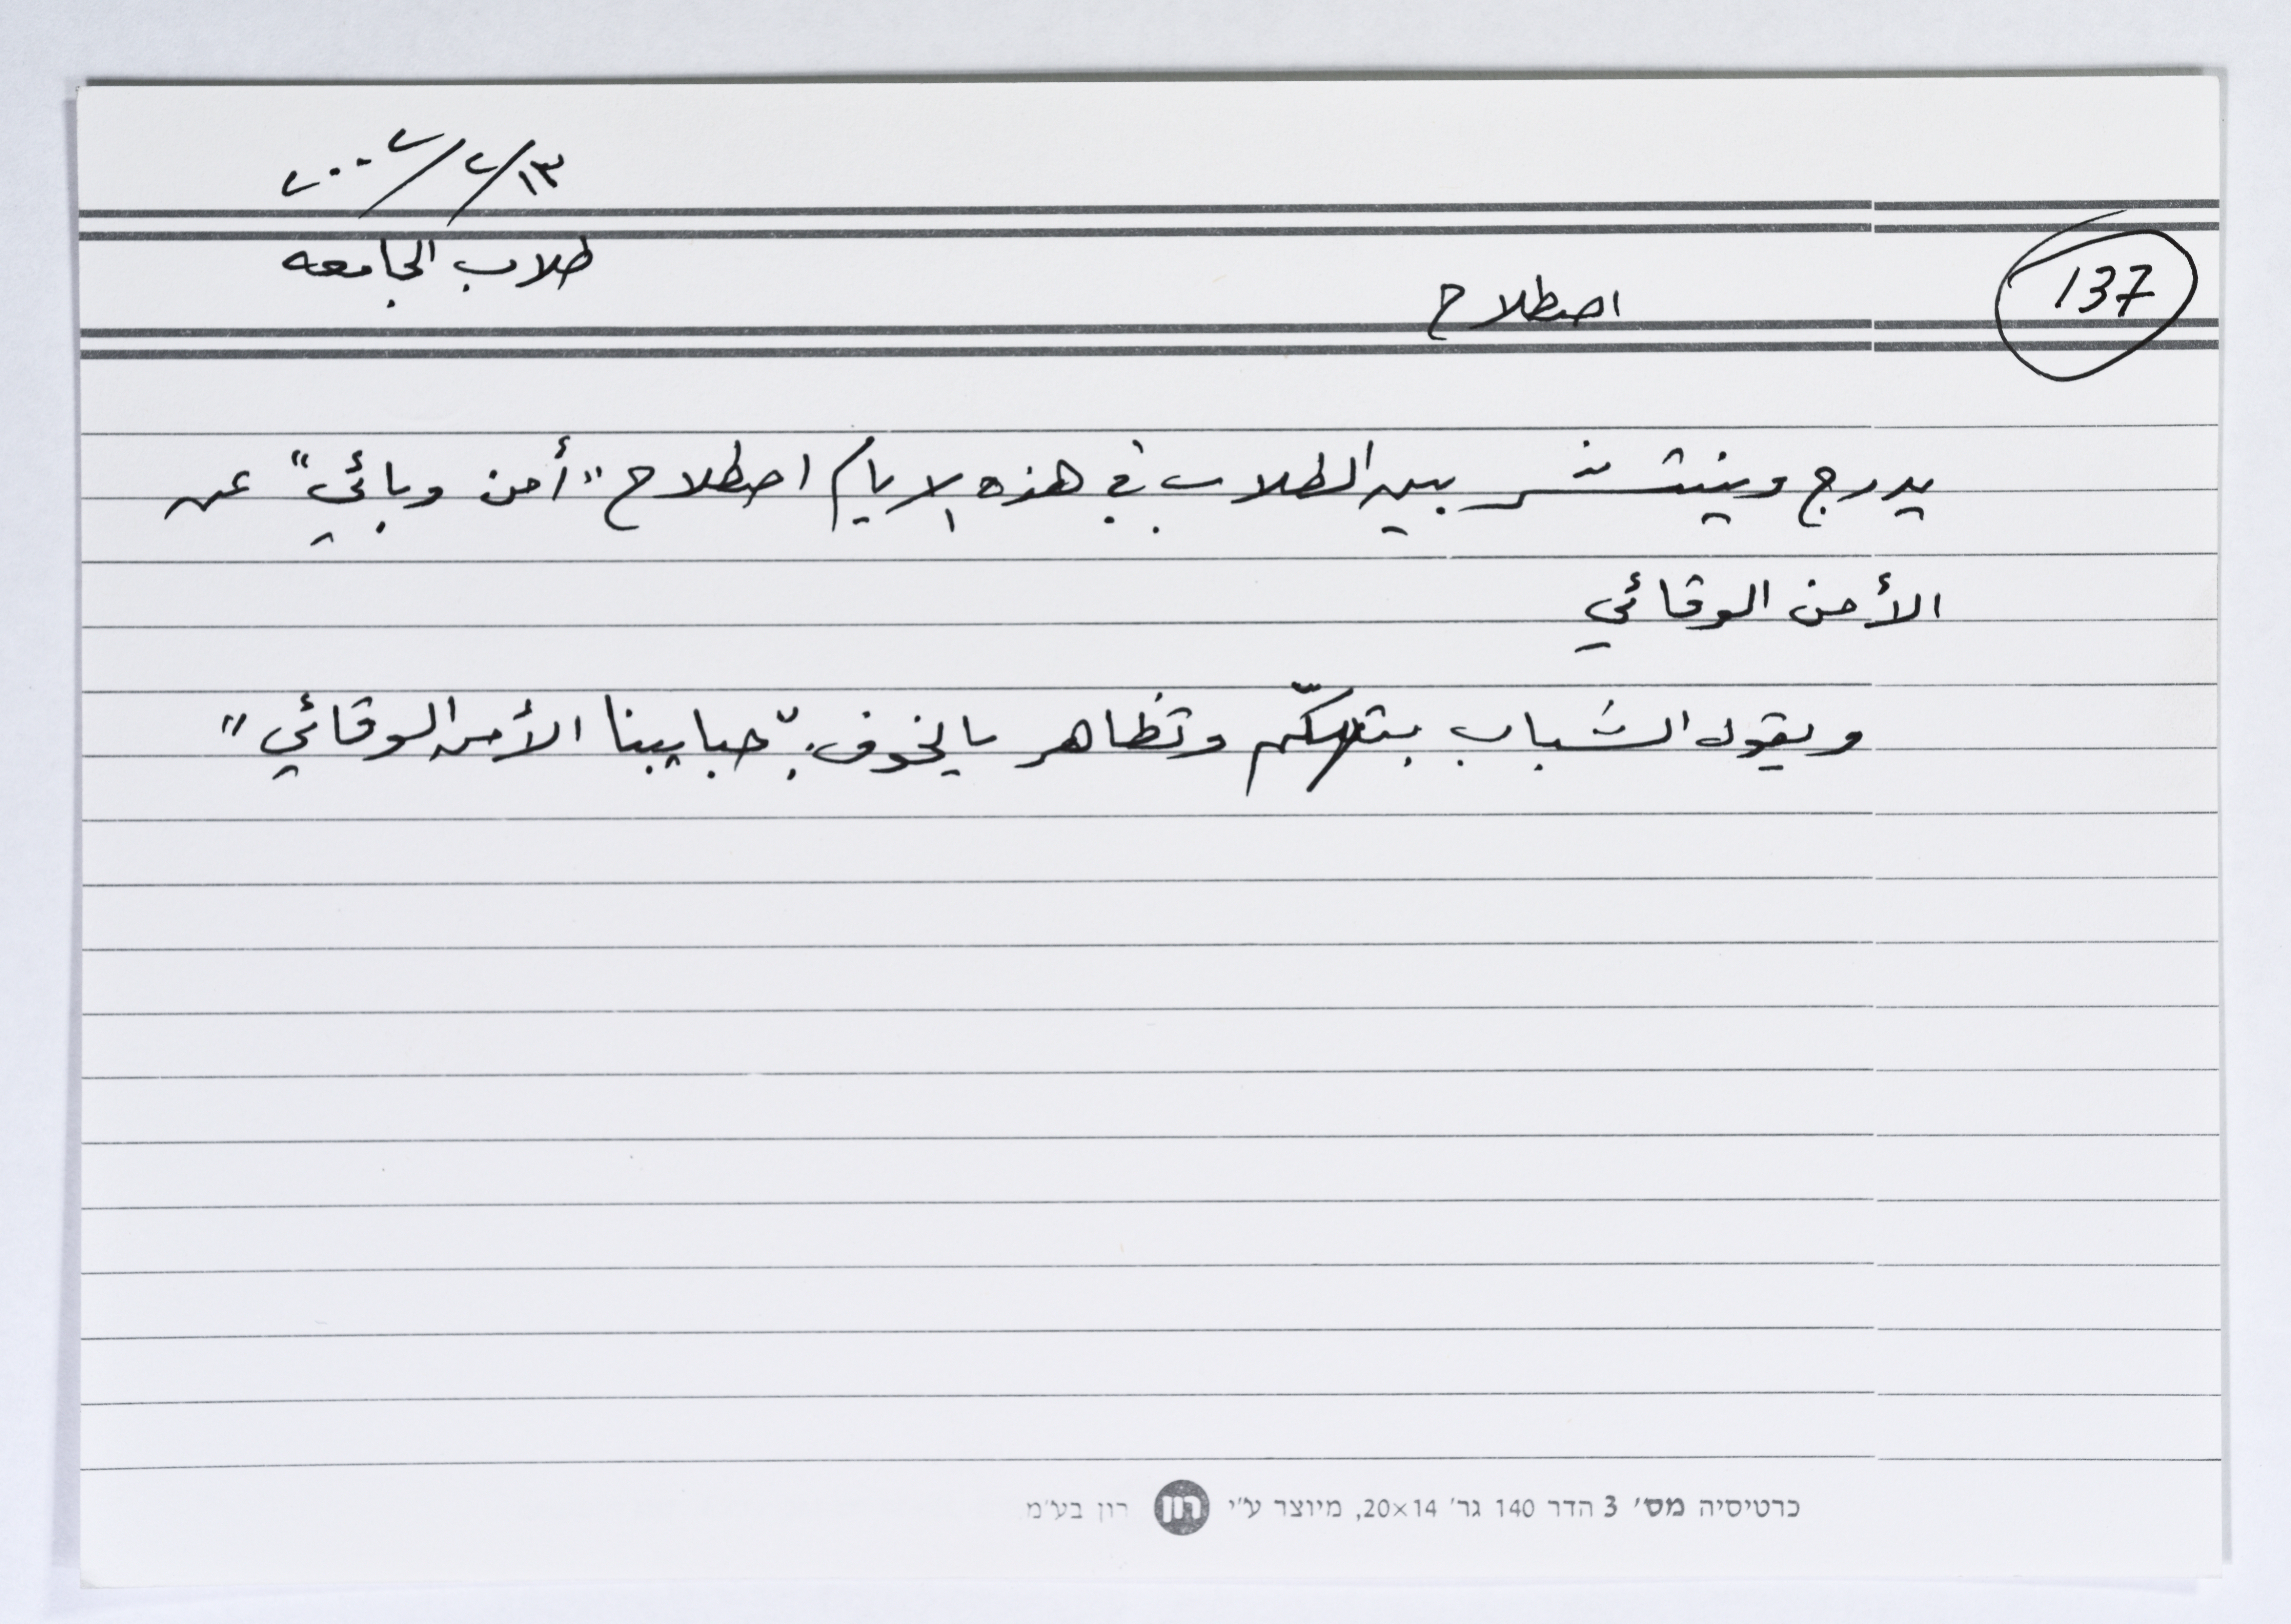 ١٣/٢/٢٠٠٢
طلاب الجامعه
137
اصطلاح
يدرج وينتشر بين الطلاب في هذه الايام اصطلاح "أمن وبائي" عن
الأمن الوقائي
ويقول الشباب بتهكّم وتظاهر بالخوف: "حبايبنا الأمن الوقائي"
כרטיסיה מס׳ 3 הדר 140 גר׳ 20×14, מיוצר ע״י רון רון בע״מ